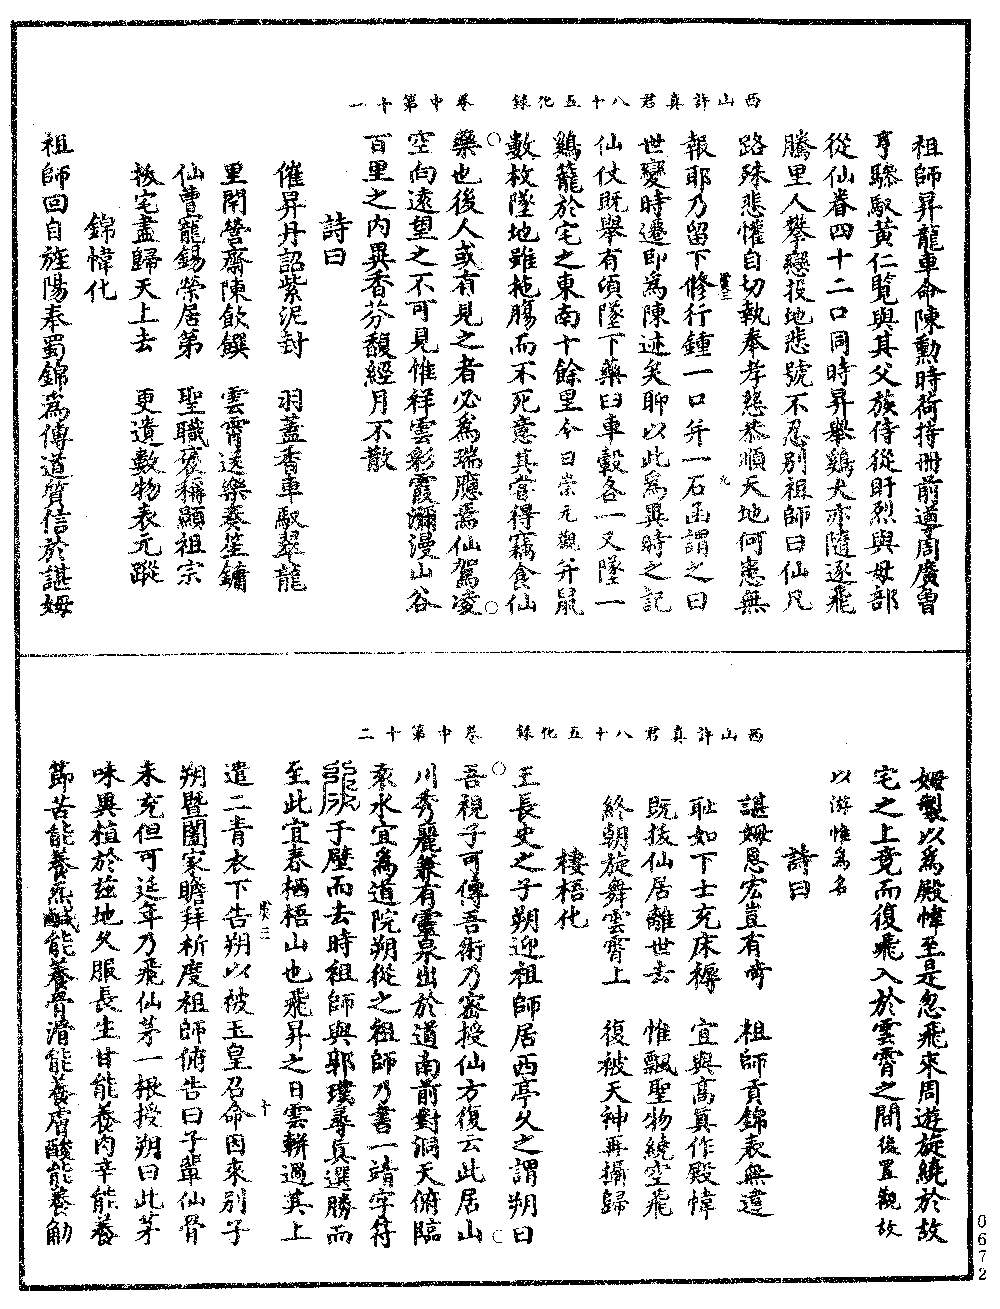 西山許真君八十五化錄　卷中第十一
祖師昇龍車命陳勲時荷持冊前導周廣曾
亨驂馭黃仁覽與其父族侍從盱烈與母部
從仙眷四十二口同時昇舉鷄犬亦隨逐飛
騰里人攀戀投地悲號不忍別祖師曰仙凡
路殊悲懽自切執奉孝慈恭順天地何患無
報耶乃留下修行鍾一口幷一石函謂之曰
世變時遷即為陳迹矣聊以此為異時之記
仙仗既舉有頃墜下藥臼車轂各一又墜一
鷄籠於宅之東南十餘里今曰崇元觀幷鼠
數枚墜地雖拖腸而不死意其嘗得竊食仙
藥也後人或有見之者必為瑞應焉仙駕凌
空向遠望之不可見惟祥雲彩霞瀰漫山谷
百里之內異香芬馥經月不散
詩曰
催昇丹詔紫泥封　羽蓋香車馭翠龍
里閈營齋陳飲饌　雲霄送樂奏笙鏞
仙曹寵錫榮居第　聖職褒稱顯祖宗
拔宅盡歸天上去　更遺數物表元蹤
錦幃化
祖師回自旌陽奉蜀錦為傳道質信於諶姆
西山許真君八十五化錄　卷中第十二
姆製以為殿幃至是忽飛來周遊旋繞於故
宅之上竟而復飛入於雲霄之間後置觀故
以游帷為名
詩曰
諶姆恩宏豈有奇　祖師貢錦表無違
恥如下士充床褥　宜與高真作殿幃
既拔仙居離世去　惟飄聖物繞空飛
終朝旋舞雲霄上　復被天神再攝歸
棲梧化
王長史之子朔迎祖師居西亭久之謂朔曰
吾視子可傳吾術乃密授仙方復云此居山
川秀麗兼有靈泉出於道南前對洞天俯臨
袤水宜為道院朔從之祖師乃書一靖字符
于壁而去時祖師與郭璞尋真選勝而
至此宜春栖梧山也飛昇之日雲軿過其上
遣二青衣下告朔以被玉皇召命因來別子
朔曁闔家瞻拜祈度祖師俯告曰子輩仙骨
未充但可延年乃飛仙茅一根授朔曰此茅
味異植於茲地久服長生甘能養肉辛能養
節苦能養氣鹹能養骨滑能養膚酸能養觔
0672